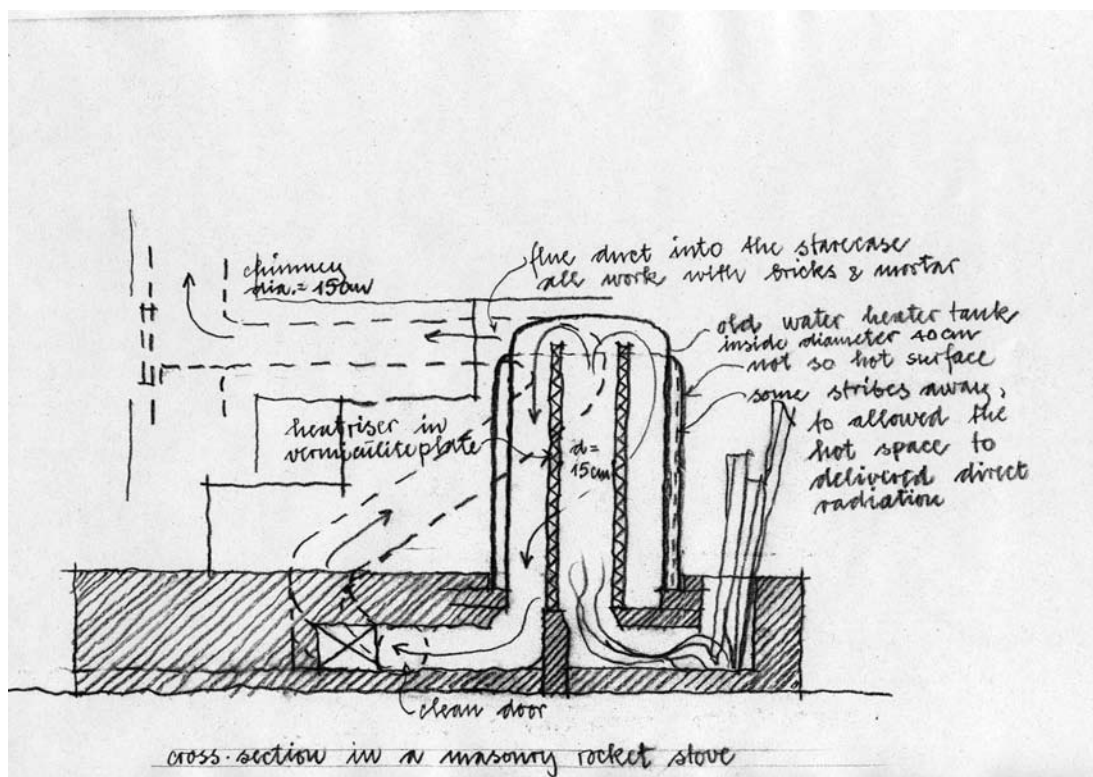 flue duct into the starecase
all work with bricks & mortar
chimney
dia. = 15cm
old water heater tank
inside diameter 40cm
not so hot surface
some stribes away,
to allowed the
hot space to
delivered direct
radiation
heatriser in
vermiculiteplate
d=
15cm
clean door
cross-section in a masonry rocket stove